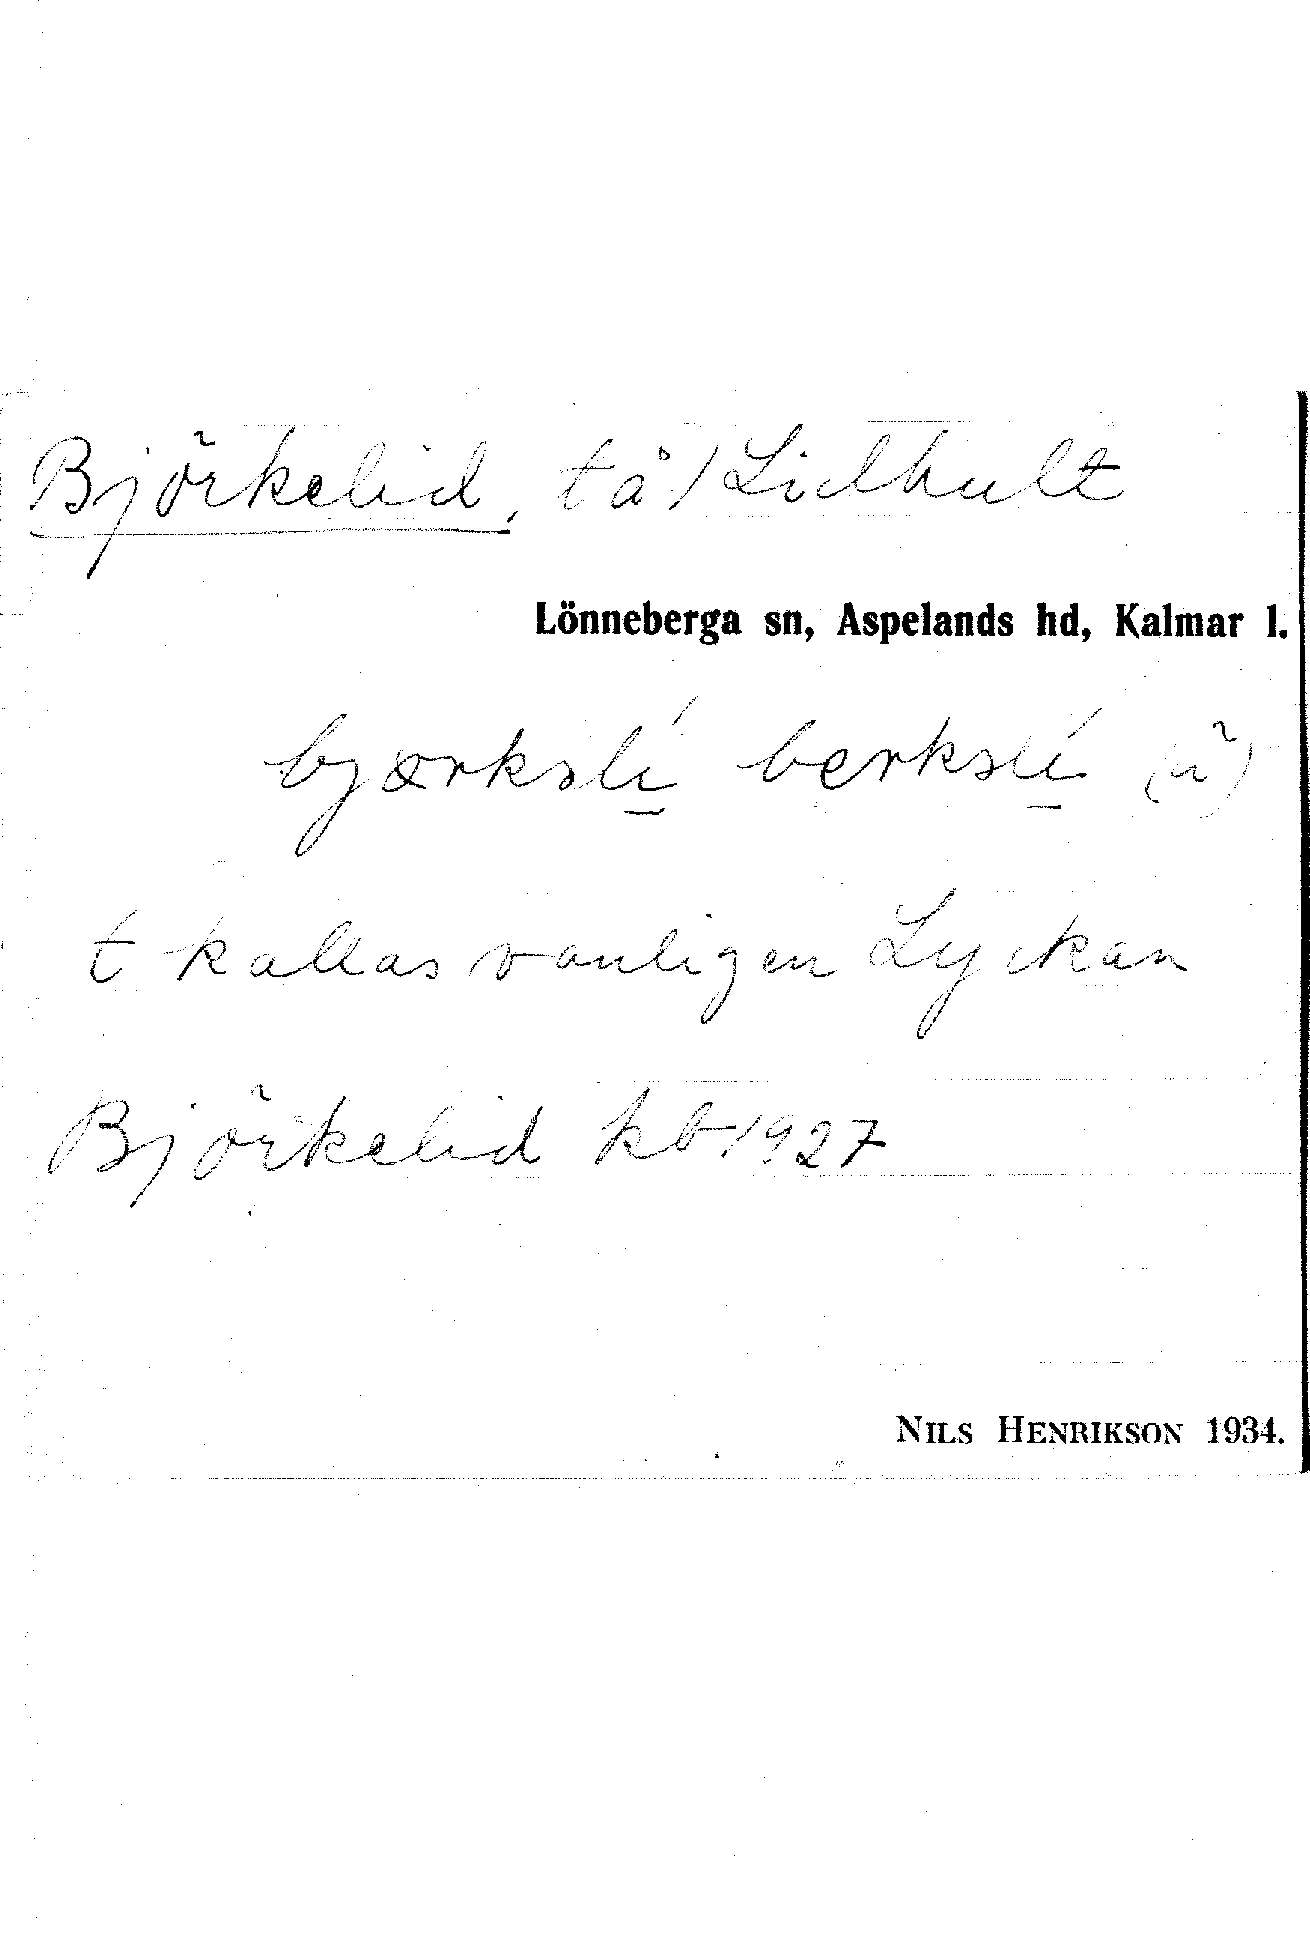 Björkelid, t å Lidhult
Lönneberga sn, Aspelands hd, Kalmar l.
bjærkəlí bærkəlí (ü)
t kallas vanligen Lyckan
Björkelid kb 1927
NILS HENRIKSON 1934.